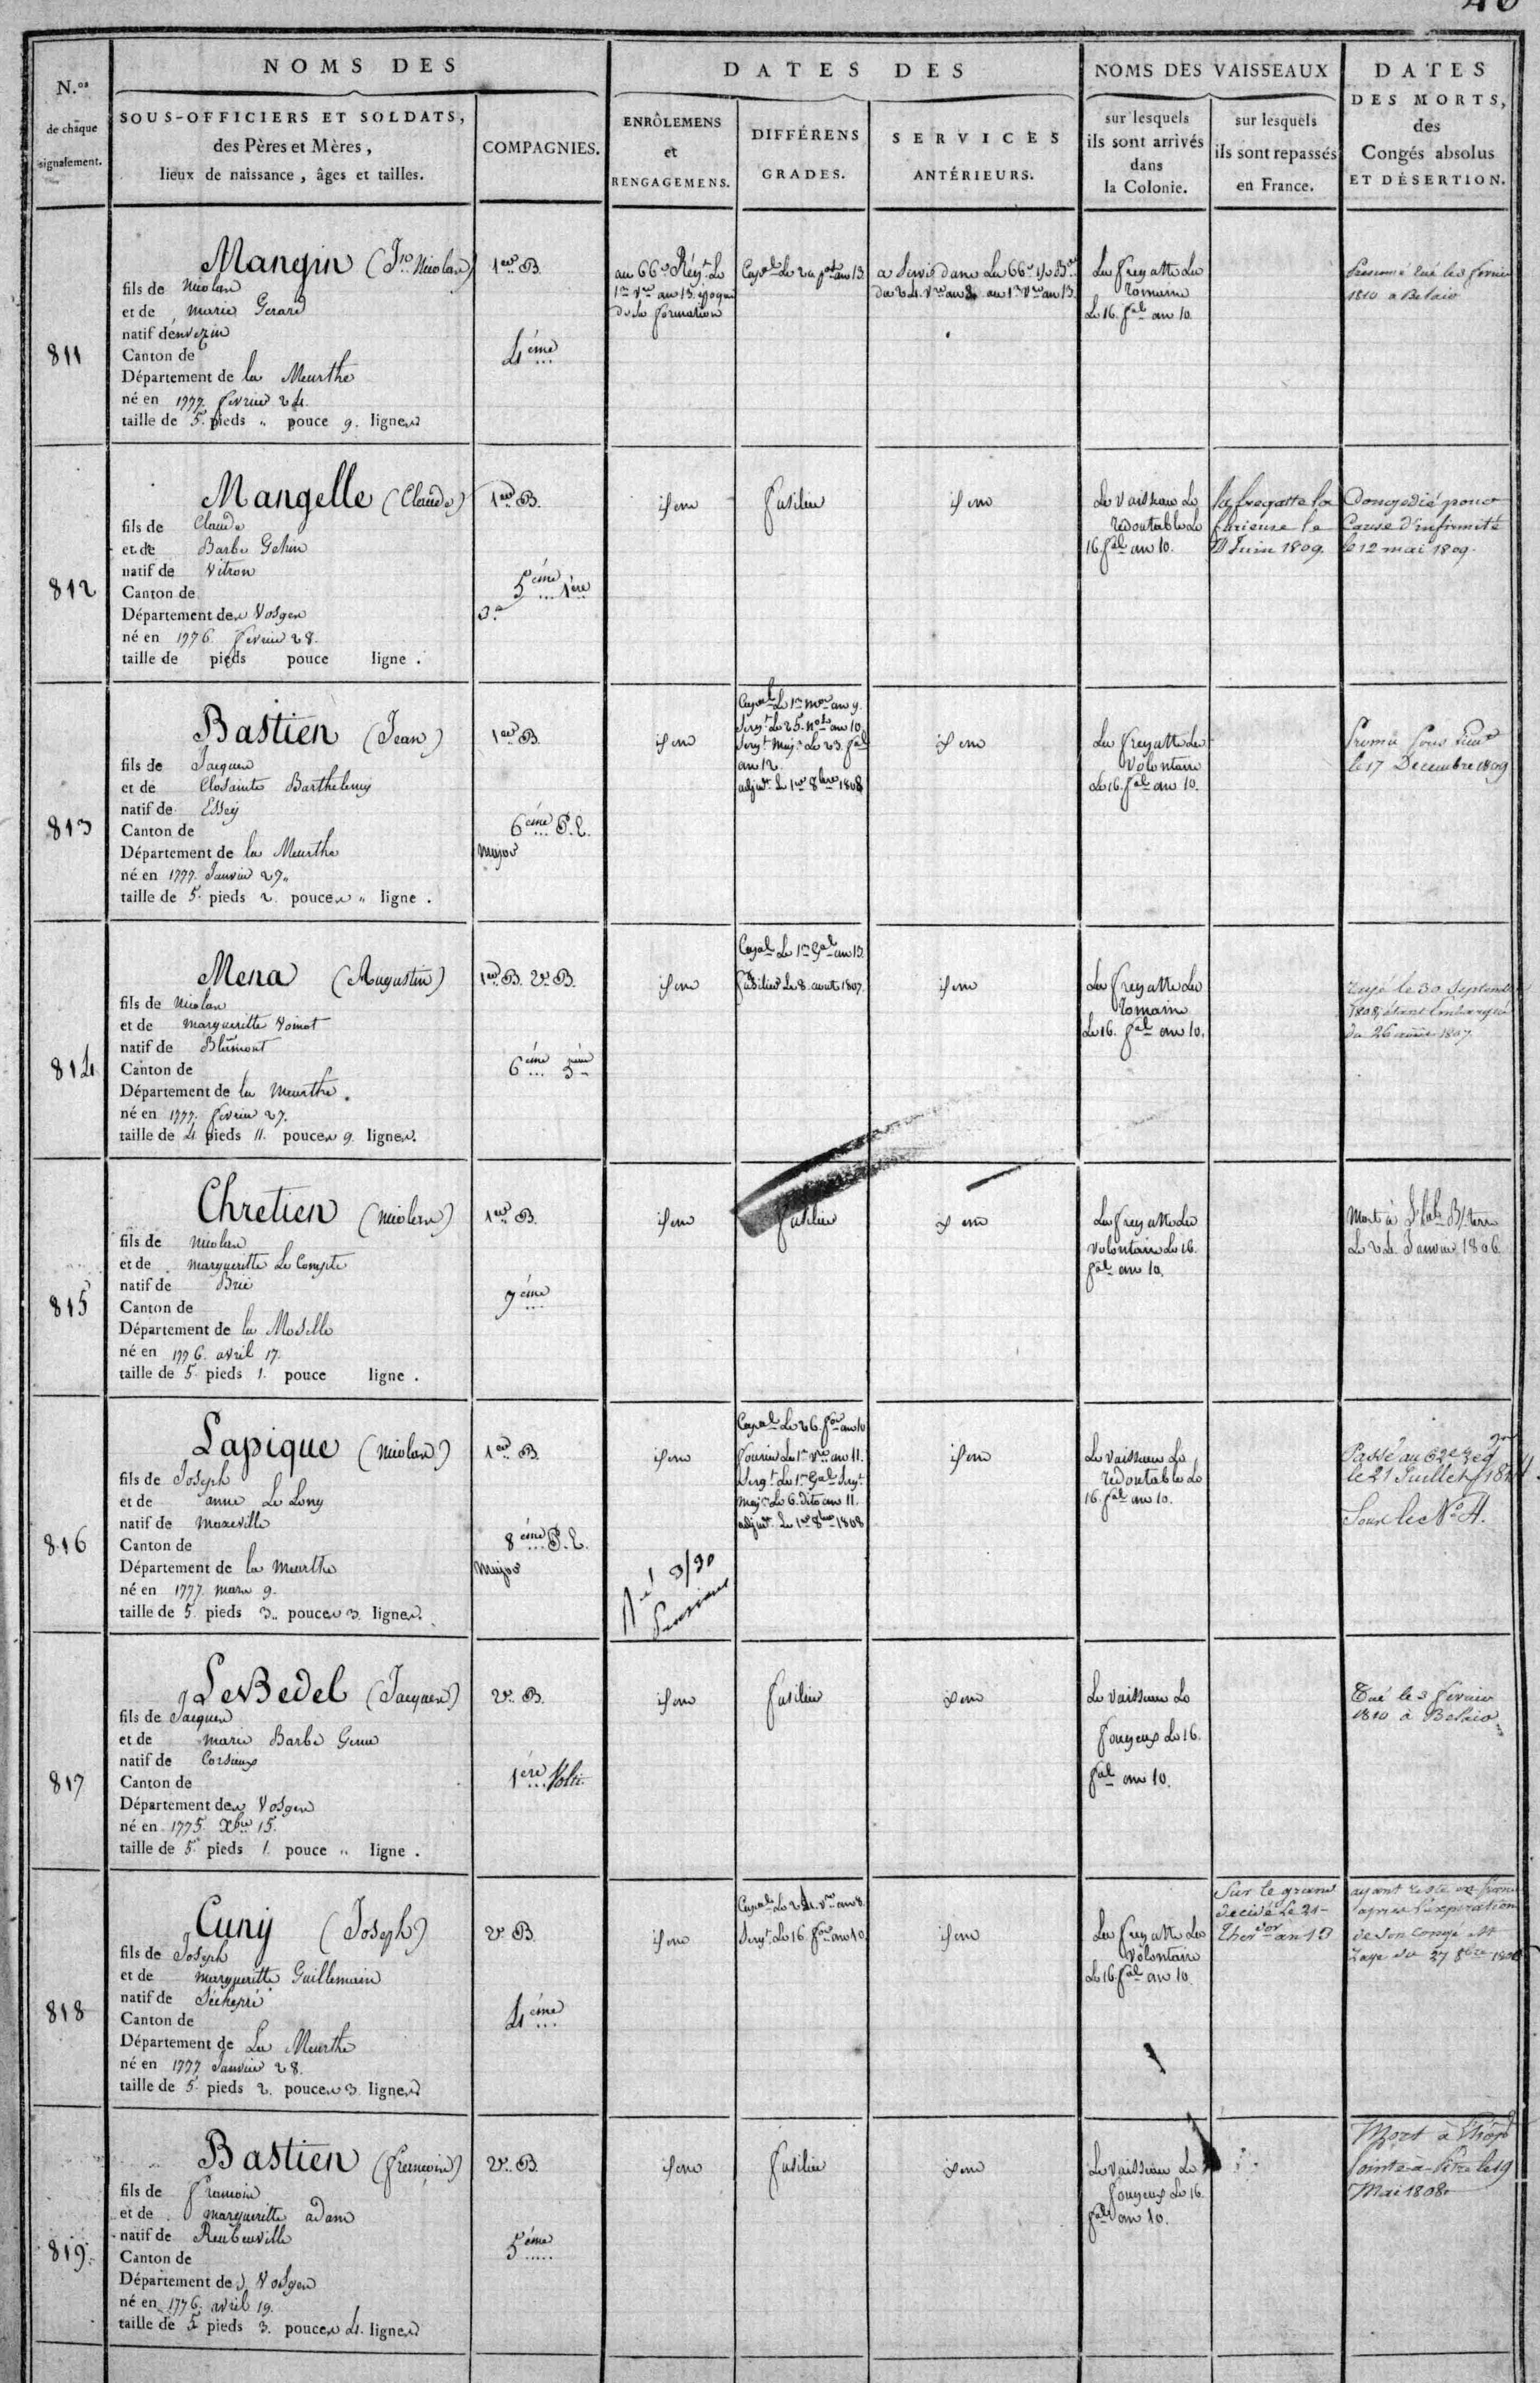 N.os
de châque
signalement.
NOMS DES
SOUS-OFFICIERS ET SOLDATS,
des Pères et Mères,
lieux de naissance, âges et tailles.
COMPAGNIES.
DATES DES
ENRÔLEMENS
et
RENGAGEMENS.
DIFFÉRENS
GRADES.
SERVICES
ANTÉRIEURS.
NOMS DES VAISSEAUX
sur lesquels
ils sont arrivés
dans
la Colonie.
sur lesquels
ils sont repassés
en France.
DATES
DES MORTS,
des
Congés absolus
ET DÉSERTION.
811
Mangin (Jn Nicolas)
fils de Nicolas
et de Marie Gerard
natif de
Canton de
Département de la Meurthe
né en 1777. fevrier 24.
taille de 5. pieds „ pouce 9. lignes
1er B.
4ème
au 66e Régt. Le
1er Vre an 13. époque
de sa formation
Capal Le
an 13.
a Servi dans Le 66e
du 24. Vre an 8. au 1er Vre an 13.
La fregatte La
romaine
Le 16. fal an 10.
Tué le 3 fevrier
1810 a Belair
812
Mangelle (Claude)
fils de Claude
et de Barbe Gehin
natif de Vitron
Canton de
Département des Vosges
né en 1776. fevrier 28.
taille de pieds pouce ligne .
1er B.
5ème 1ère
idem
fusilier
idem
Le vaisseau Le
redoutable Le
16. fal an 10.
la fregatte la
furieuse le
Juin 1809.
Congedié pour
Cause d'infirmité
le 12 mai 1809.
813
Bastien (Jean)
fils de Jacques
et de Closainte Barthelemy
natif de Essey
Canton de
Département de la Meurthe
né en 1777. Janvier 27.
taille de 5. pieds 2. pouces „ ligne .
1er B.
6ème P. E.
major
idem
Capal Le 1er mor an 9.
Sergt. Le 25. nose an 10.
Sergt. Majr. Le 23. fal
an 12.
adjudt. Le 1er 8bre 1808
idem
La fregatte La
Volontaire
Le 16. fal an 10.
Promu Sous Lieut
le 17 Decembre 1809
814
Mena (Augustin)
fils de Nicolas
et de Marguerite Voinot
natif de Blâmont
Canton de
Département de la Meurthe.
né en 1777. fevrier 27.
taille de 4 pieds 11. pouces 9. lignes.
1er B. 2e B.
6ème 5ème
idem
Capal Le 1er Gal an 13.
fusilier Le 8. aout 1807.
idem
La fregatte La
romaine
Le 16. fal an 10.
rayé le 30 Septembre
1808, étant
du 26 1807
815
Chretien (Nicolas)
fils de Nicolas
et de Marguerite Le Compte
natif de Brie
Canton de
Département de la Moselle
né en 1776. avril 17.
taille de 5 pieds 1. pouce ligne .
1er B.
7ème
idem
fusilier
idem
La fregatte La
volontaire Le 16.
fal an 10.
Mort à L'hal B/terre
Le 24. Janvier 1806.
816
Lapique (Nicolas)
fils de Joseph
et de anne Le Lony
natif de Maxeville
Canton de
Département de la Meurthe
né en 1777. mars 9.
taille de 5. pieds 3. pouces 3. lignes.
1er B.
8ème P. E.
Major
idem
Capal Le 26. for an 10
fourier Le 1er Vre an 11.
Sergt. Le 1er Gal Sergt.
majr. Le 6. dito an 11.
adjudt. Le 1er 8bre 1808
idem
Le vaisseau Le
redoutable Le
16. fal an 10.
Passé au 62e reg
le 21 Juillet
Sous le No 4.
817
LeBedel (Jacques)
fils de Jacques
et de Marie Barbe
natif de Corsieux
Canton de
Département des Vosges
né en 1775. Xbre 15.
taille de 5. pieds 1. pouce „ ligne .
2e B.
1ère Volti
idem
fusilier
idem
Le vaisseau Le
fougueux Le 16.
fal an 10.
Tué le 3 fevrier
1810 à Belair
818
Cuny (Joseph)
fils de Joseph
et de Marguerite Guillemain
natif de
Canton de
Département de La Meurthe
né en 1777 Janvier 28.
taille de 5. pieds 2. pouces 3. lignes
2e B
4ème
idem
Capal Le 24. Vre an 8.
Sergt. Le 16. for an 10.
idem
La fregatte La
Volontaire
Le 16. fal an 10.
Sur le grand
decidé Le 21
Thermor an 13
ayant resté en france
après l'expiration
de son congé est
rayé du 27 8bre
819.
Bastien (françois)
fils de françois
et de Marguerite adam
natif de
Canton de
Département des Vosges
né en 1776. avril 19.
taille de 5 pieds 3. pouces 4. lignes
2e B.
5ème
idem
fusilier
idem
Le vaisseau Le
fougueux Le 16.
fal an 10.
Mort à l'hôpal
Pointe-à-Pitre le 19
Mai 1808.